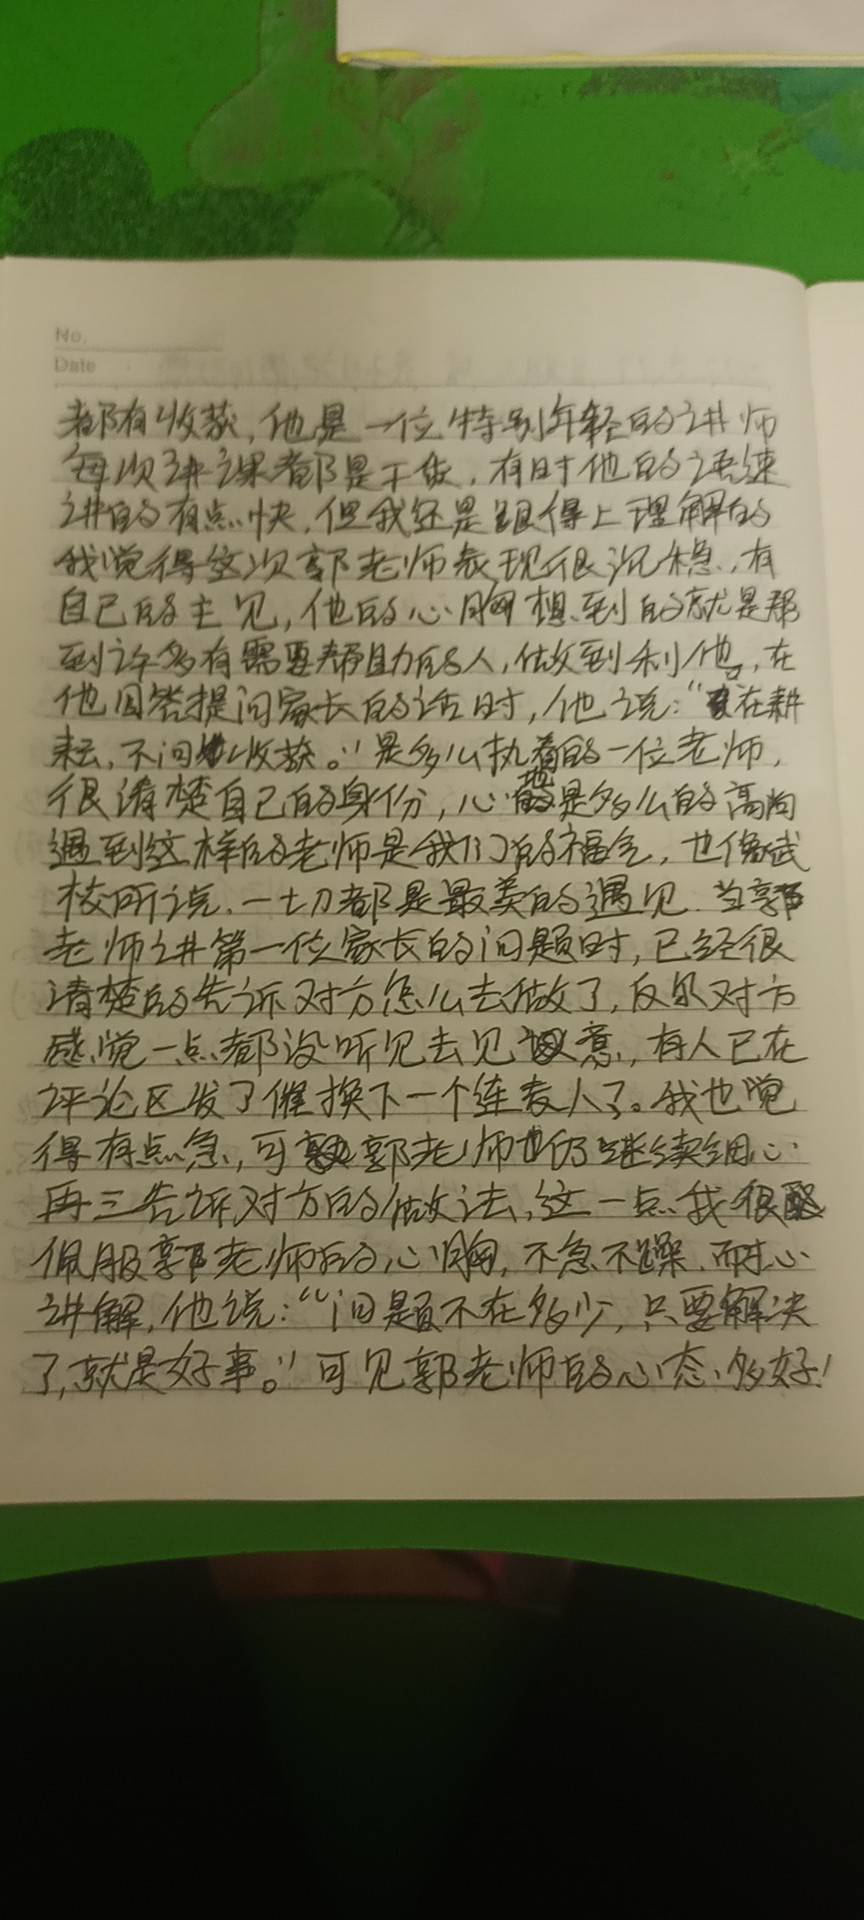 No.
Date
都有收获,他是一位特别年轻的讲师
每次讲课都是干货,有时他的语速
讲的有点快,但我还是跟得上理解的
我觉得这次郭老师表现很沉稳,有
自己的主见,他的心胸想到的就是帮
到许多有需要帮助的人,做到利他。在
他回答提问家长的话时,他说:“在耕
耘,不问收获。”是多么执着的一位老师,
很清楚自己的身份,心地是多么的高尚
遇到这样的老师是我们的福气,也像武
校所说,一切都是最美的遇见.当郭
老师讲第一位家长的问题时,已经很
清楚的告诉对方怎么去做了,反观对方
感觉一点都没听见去见意,有人已在
评论区发了催换下一个连麦人了。我也觉
得有点急,可郭老师仍继续细心
再三告诉对方的做法,这一点我很
佩服郭老师的心胸,不急不躁,耐心
讲解,他说:“问题不在多少,只要解决
了,就是好事。”可见郭老师的心态多好!